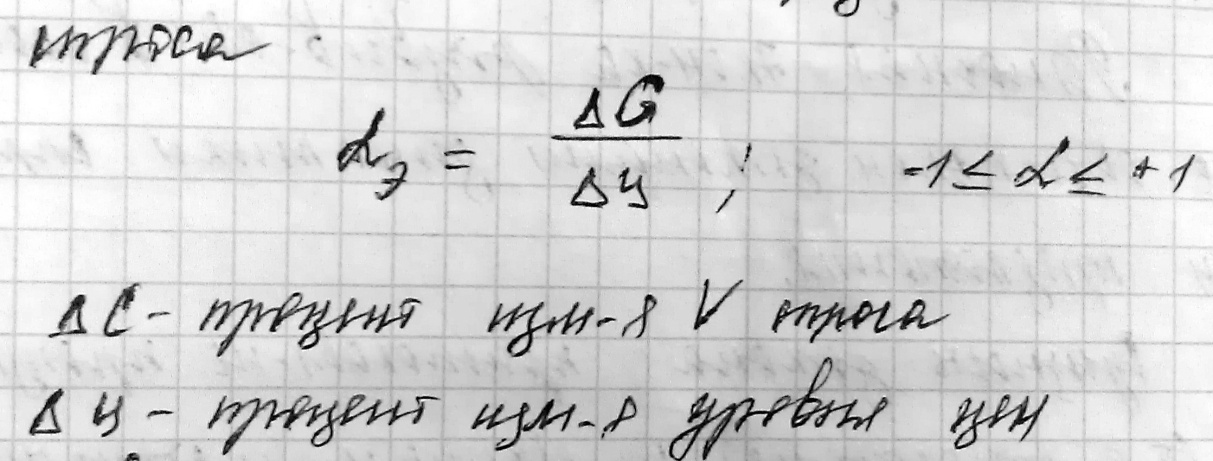 спроса
α_э = ΔC / Δц ; -1 ≤ α ≤ +1
ΔC - процент изм-я V спроса
Δц - процент изм-я уровня цен